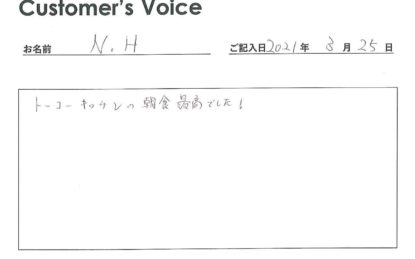 Customer's Voice
お名前 N.H ご記入日2021年 3月 25日
トーコーキッチンの朝食最高でした!